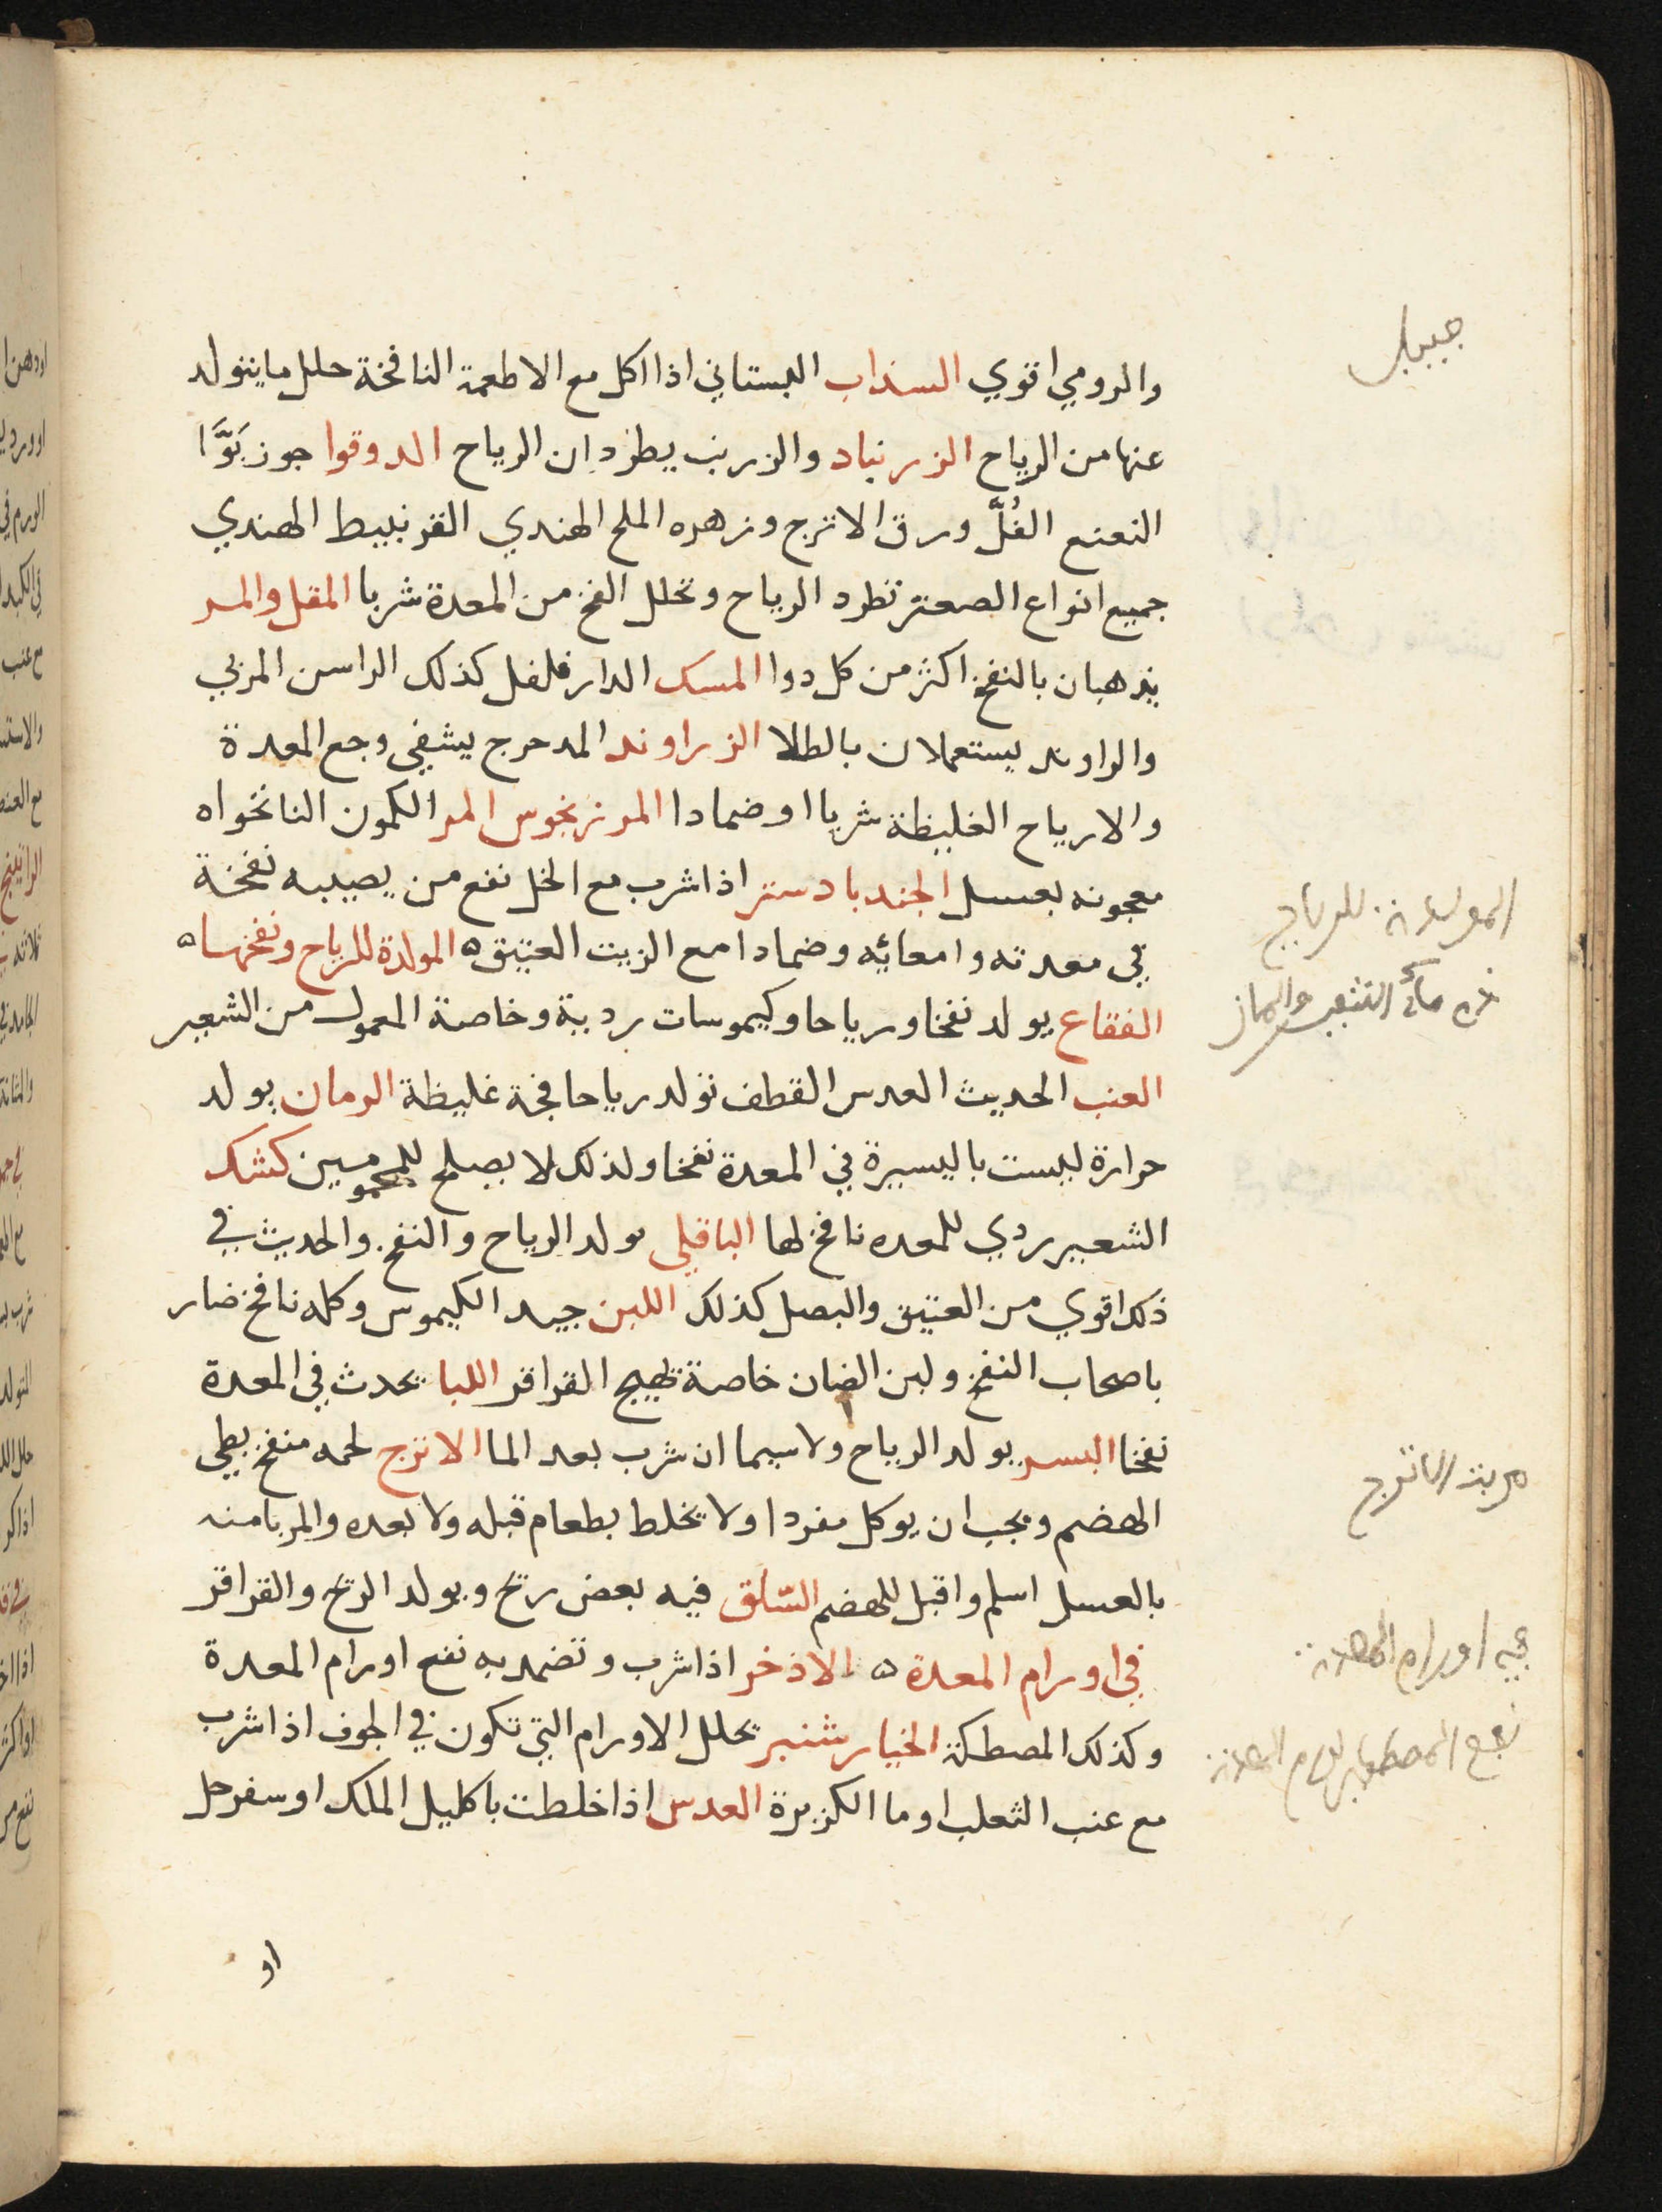 والرومي اقوي السذاب البستاني اذا اكل مع الاطعمة النافخة حلل ما يتولد
عنها من الرياح الزرنباد والزرنب يطردان الرياح الدوقوا جوز بَوَّا
النعنع الفُلّ ورق الاترج وزهره الملح الهندي القرنبيط الهندي
جميع انواع الصعتر تطرد الرياح وتحلل النفخ من المعدة شربا المقل والمر
يذهبان بالنفخ اكثر من كل دوا المسك الدارفلفل كذلك الراسن المربي
والراوند يستعملان بالطلا الزراوند المدحرج يشفي وجع المعدة
والارياح الغليظة شربا او ضمادا المرزنجوس المر الكمون النانخواه
معجونه بعسل الجندبادستر اذا شرب مع الخل نفع من يصيبه نفخة
في معدته وامعائه وضمادا مع الزيت العتيق ه المولدة للرياح ونفخها ه
الفقاع يولد نفخا ورياحا وكيموسات ردية وخاصة المعمول من الشعير
العنب الحديث العدس القطف تولد رياحا فجة غليظة الرمان يولد
حرارة ليست باليسيرة في المعدة نفخا ولذلك لا يصلح للمحمومين كشك
الشعير ردي للمعده نافخ لها الباقلي يولد الرياح والنفخ والحديث في
ذلك اقوي من العتيق والبصل كذلك اللبن جيد الكيموس وكله نافخ ضار
باصحاب النفخ ولبن الضان خاصة تهيج القراقر اللبا يحدث في المعدة
نفخا البسر يولد الرياح ولا سيما ان شرب بعد الما الاترج لحمه منفخ بطي
الهضم ويجب ان يوكل مفردا ولا يخلط بطعام قبله ولا بعده والمربا منه
بالعسل اسلم واقبل للهضم السّلق فيه بعض ريح ويولد الريح والقراقر
في اورام المعدة ه الاذخر اذا شرب وتضمد به نفع اورام المعدة
وكذلك المصطكة الخيارشنبر يحلل الاورام التي تكون في الجوف اذا شرب
مع عنب الثعلب او ما الكزبرة العدس اذا خلطت باكليل الملك او سفرجل
او
المولدة للرياح
في اورام المعدة